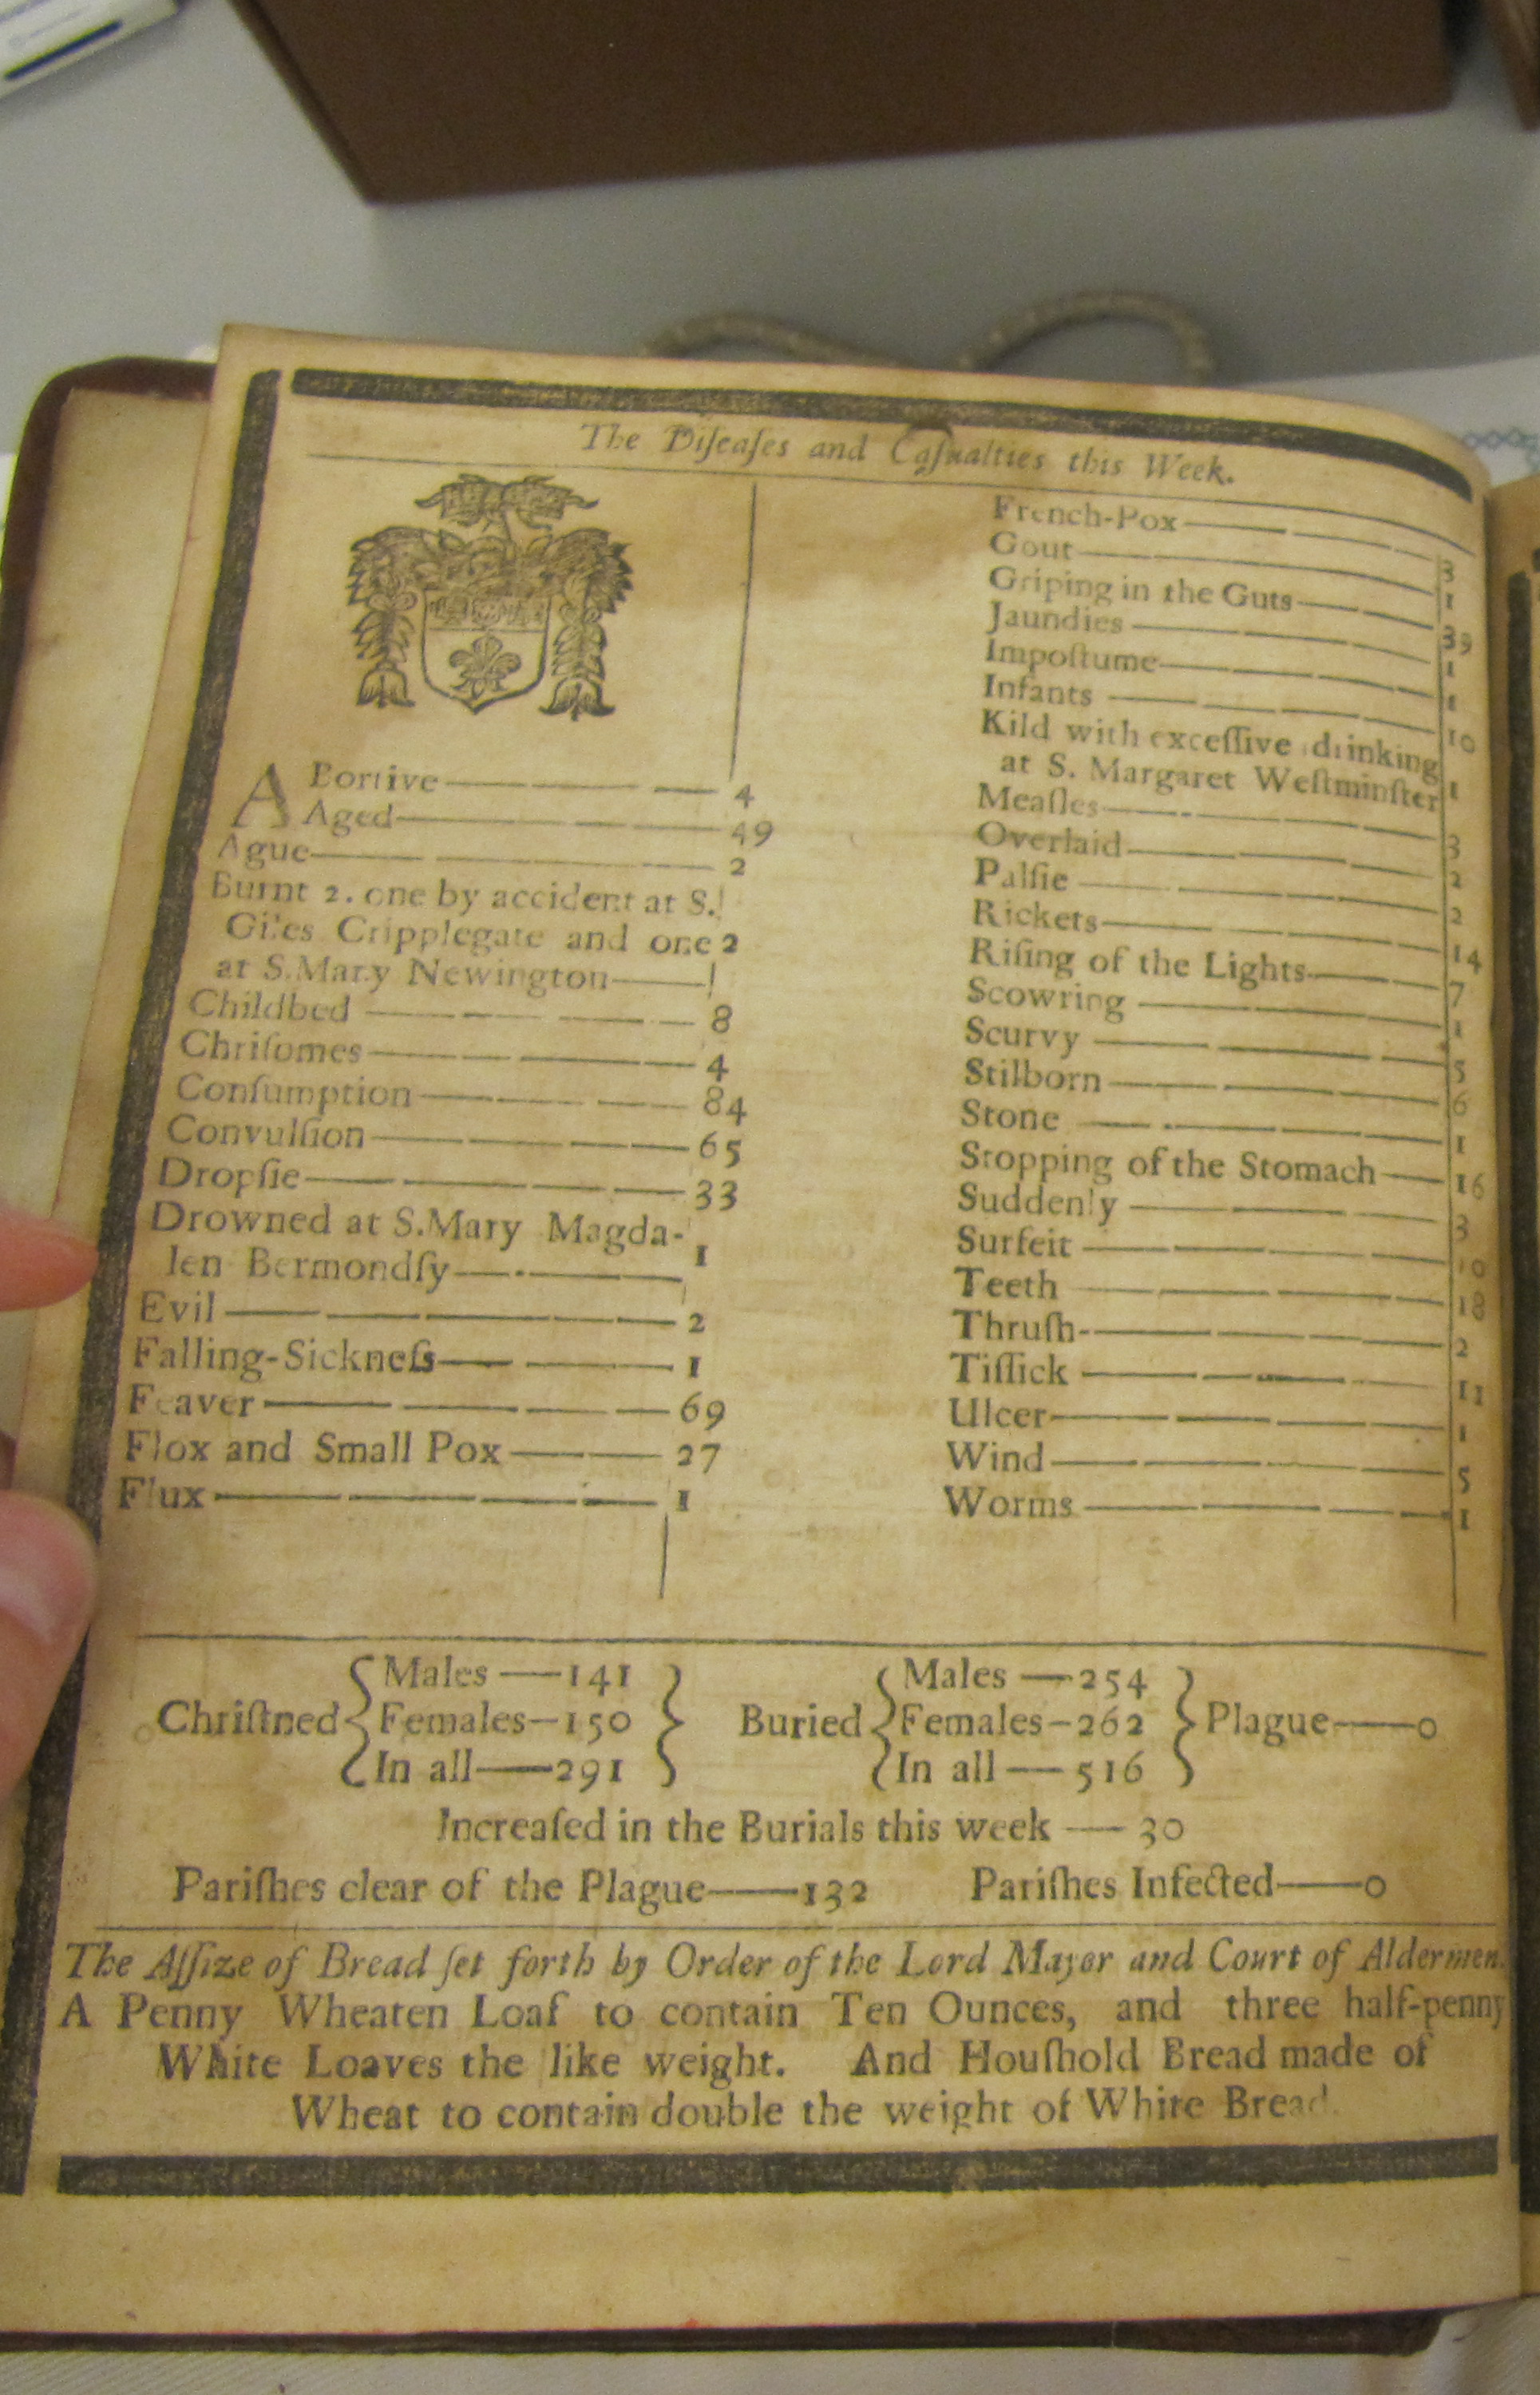 The Diſeaſes and Caſualties this Week.
ABortive — 4
Aged — 49
Ague — 2
Burnt 2. one by accident at S.
Giles Cripplegate and one 2
at S. Mary Newington —
Childbed — 8
Chriſomes — 4
Conſumption — 84
Convulſion — 65
Dropſie — 33
Drowned at S. Mary Magda-
len Bermondſy — 1
Evil — 2
Falling-Sickneſs — 1
Feaver — 69
Flox and Small Pox — 27
Flux — 1
French-Pox — 3
Gout — 1
Griping in the Guts — 39
Jaundies — 1
Impoſtume — 1
Infants — 10
Kild with exceſſive drinking
at S. Margaret Weſtminſter 1
Meaſles — 3
Overlaid — 2
Palſie — 2
Rickets — 14
Riſing of the Lights — 7
Scowring — 1
Scurvy — 5
Stilborn — 6
Stone — 1
Stopping of the Stomach — 16
Suddenly — 3
Surfeit — 10
Teeth — 18
Thruſh — 2
Tiſſick — 11
Ulcer — 1
Wind — 5
Worms — 1
Chriſtned { Males — 141
Females — 150
In all — 291 }
Buried { Males — 254
Females — 262
In all — 516 } Plague — 0
Increaſed in the Burials this week — 30
Pariſhes clear of the Plague — 132 Pariſhes Infected — 0
The Aſſize of Bread ſet forth by Order of the Lord Mayor and Court of Aldermen.
A Penny Wheaten Loaf to contain Ten Ounces, and three half-penny
White Loaves the like weight. And Houſhold Bread made of
Wheat to contain double the weight of White Bread.